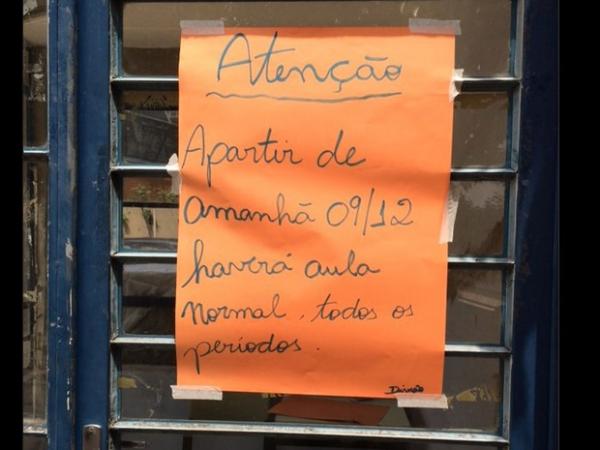 Atenção
Apartir de
amanhã 09/12
haverá aula
normal, todos os
períodos.
Direção